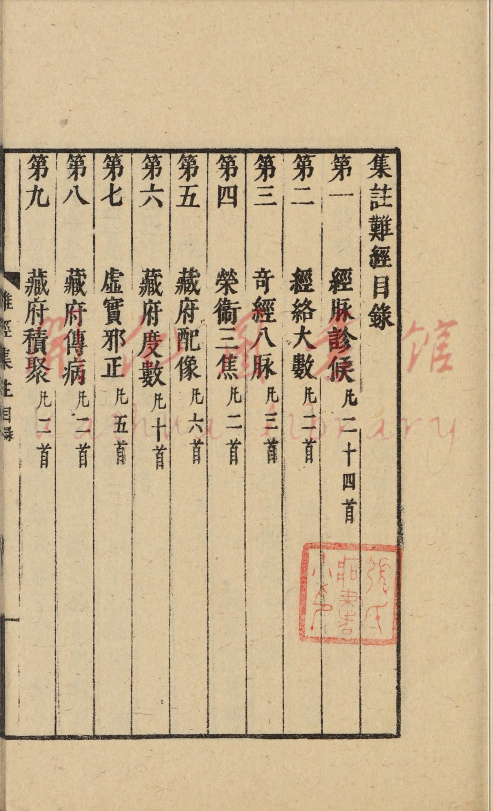 集註難經目錄
第一　經脉診候凡二十四首
第二　經絡大數凡二首
第三　奇經八脉凡三首
第四　榮衞三焦凡二首
第五　藏府配像凡六首
第六　藏府度數凡十首
第七　虛實邪正凡五首
第八　藏府傳病凡二首
第九　藏府積聚凡二首
難經集註目錄
一